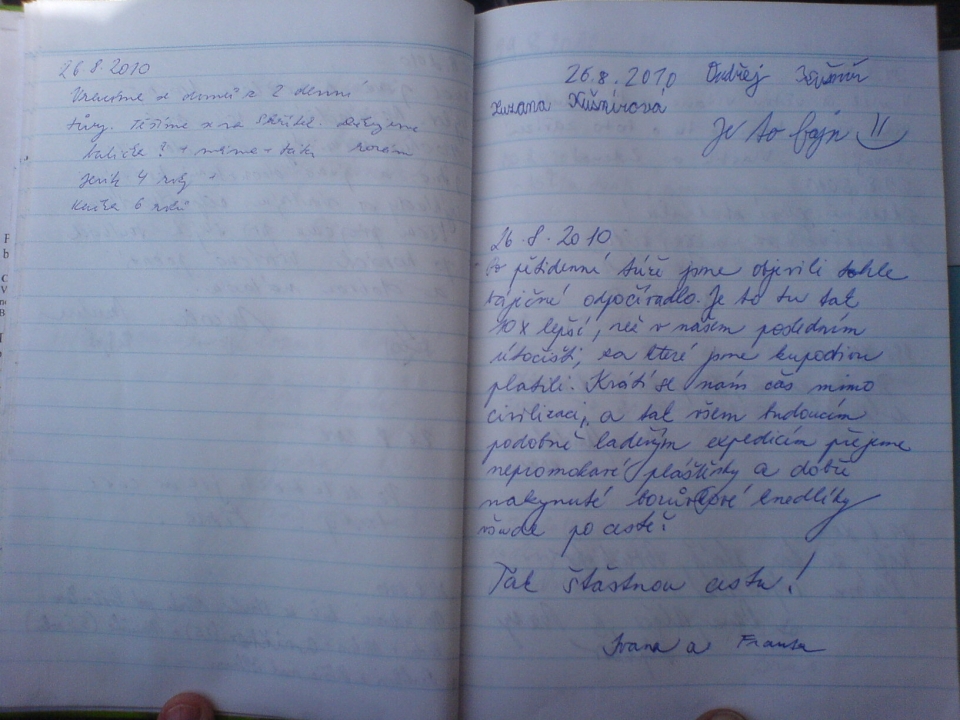 26.8.2010
Vracíme se domů z 2 denní
túry. Těšíme se na
+ máma + táta
Jeník 4 roky
6 roků
26.8.2010 Ondřej
Zuzana Kušnírová
Je to fajn
26.8.2010
Po pětidenní túře jsme objevili tohle
báječné odpočívadlo. Je to tu tak
10x lepší, než v našem posledním
útočišti, za které jsme kupodivu
platili. Krátí se nám čas mimo
civilizaci, a tak všem budoucím
podobně laděným expedicím přejeme
nepromokavé pláštěnky a dobře
nakynuté borůvkové knedlíky
všude po cestě!
Tak šťastnou cestu!
Ivana a Franta